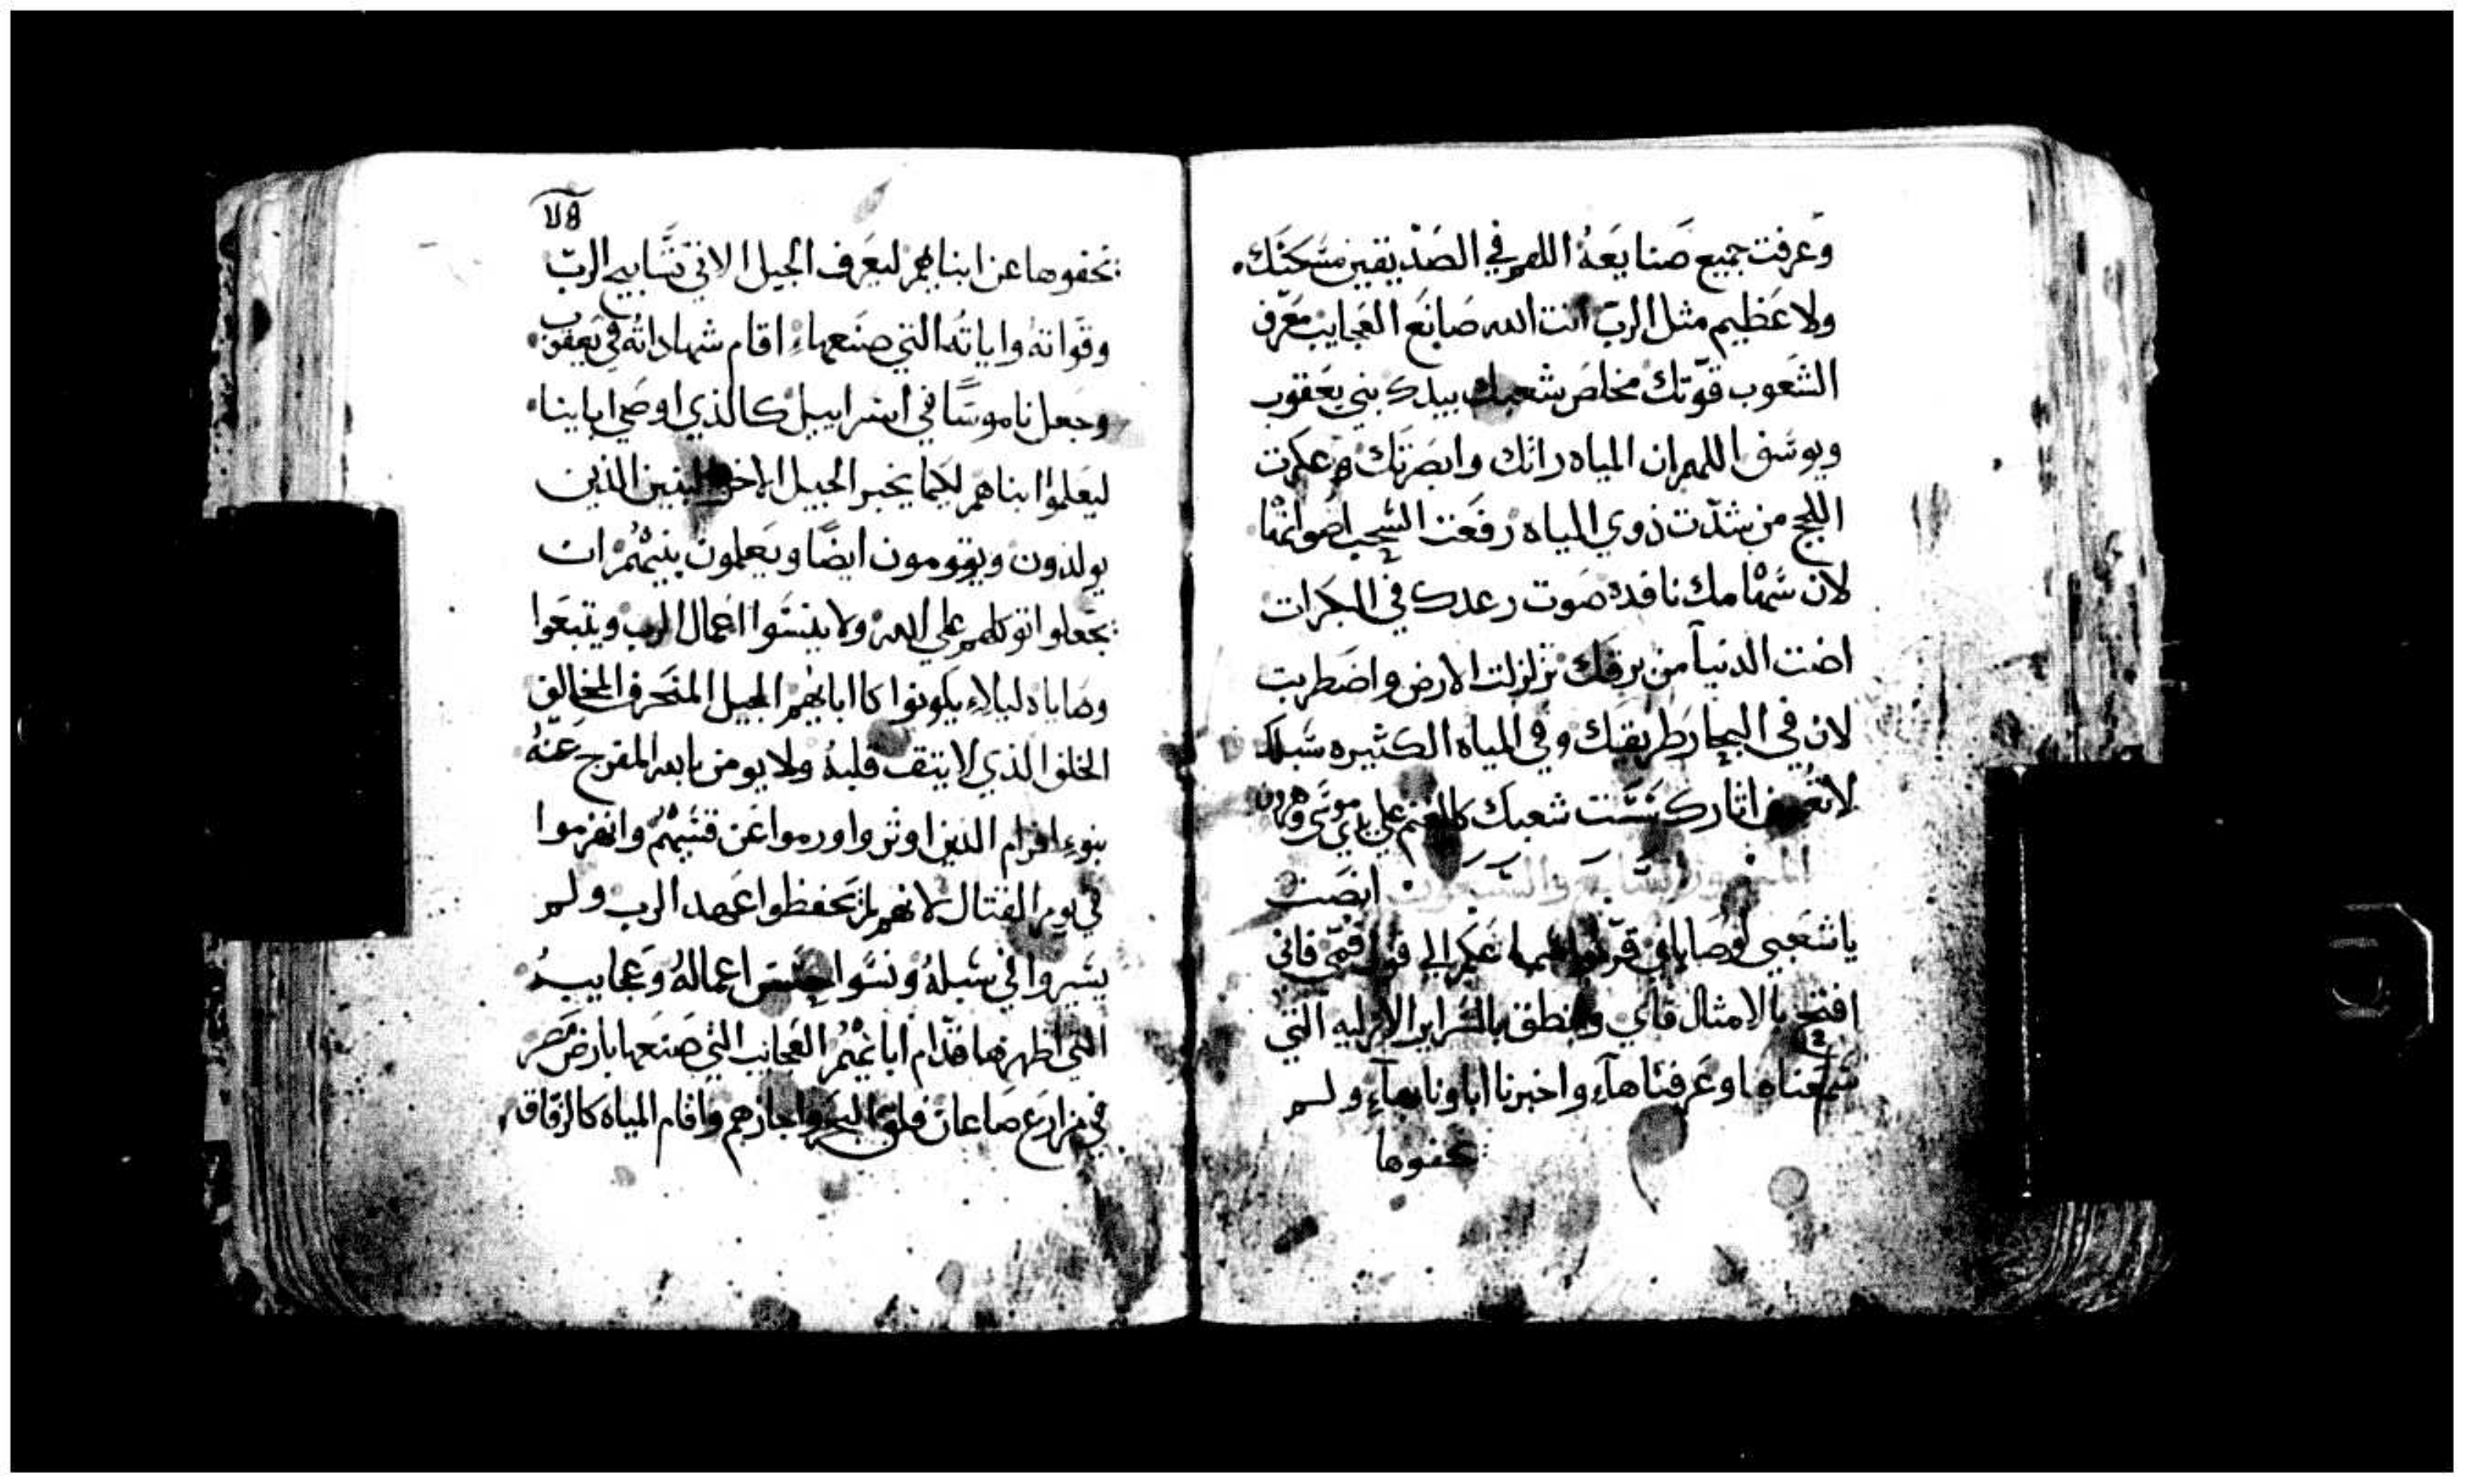 وعرفت جميع صنايعه اللهم في الصديقين مسكنك
ولا عظيم مثل الرب انت الله صانع العجايب معرف
الشعوب قوتك مخلص شعبك بيدك بني يعقوب
ويوسف اللهم ان المياه راتك وابصرتك عكرت
اللجج من شدت دوي المياه رفعت السحب اصواتها
لان سهامك نافده صوت رعدك في البكرات
اضت الدنيا من برقك تزلزلت الارض واضطربت
لان في البحار طريقك وفي المياه الكثيره سبلك
لا اثارك شعبك كالغنم علي يدي موسي وهرون
المزمور السابع والسبعون انصت
يا شعبي لوصاياي الي قول فمي فاني
افتح بالامثال فاي وانطق بالسراير الازليه التي
سمعناها وعرفناها واخبرنا اباونا بها ولم
نخفوها
نخفوها عن ابنايهم ليعرف الجيل الاتي تسابيح الرب
وقواته واياته التي صنعها اقام شهاداته في يعقوب
وجعل ناموسا في اسراييل كالذي اوصي اباينا
ليعلموا ابناهم لكيما يخبر الجيل الاخر البنين الذين
يولدون ويقومون ايضا ويعلمون بنيهم ان
يجعلوا توكلهم علي الله ولا ينسوا اعمال الرب ويتبعوا
وصاياه ليلا يكونوا كاابايهم الجيل المنحرف المخالف
الخلف الذي لا يتق قلبه ولا يومن بالله المفرج عنه
بنوا افرام الذين اوتروا ورموا عن قسيهم وانهزموا
في يوم القتال لانهم لم يحفظوا عهد الرب ولم
يسيروا في سبله ونسوا حسن اعماله وعجايبه
التي اظهرها قدام ابايهم العجايب التي صنعها بارض مصر
في مزارع صاعان فلق البحر واجازهم واقام المياه كالزقاق